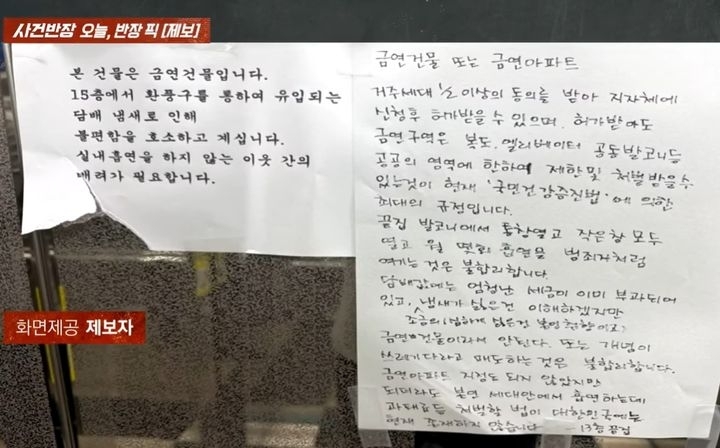 사건반장 오늘, 반장 픽 [제보]
본 건물은 금연건물입니다.
15층에서 환풍구를 통하여 유입되는
담배 냄새로 인해
불편함을 호소하고 계십니다.
실내흡연을 하지 않는 이웃 간의
배려가 필요합니다.
금연건물 또는 금연아파트
거주세대 ½이상의 동의를 받아 지자체에
신청후 허가받을 수 있으며, 허가받아도
금연구역은 복도, 엘리베이터 공동발코니등
공공의 영역에 한하여 제한및 처벌받을수
있는것이 현재 '국민건강증진법'에 의한
최대의 규정입니다.
끝집 발코니에서 통창열고 작은창 모두
열고 월 몇회 흡연을 범죄자처럼
여기는 것은 불합리합니다.
담배값에는 엄청난 세금이 이미 부과되어
있고, 냄새가 싫은건 이해하겠지만
조금의 싫은건 본인 취향이고
금연건물이라서 안된다. 또는 개념이
쓰레기다라고 매도하는것은 불합리합니다.
금연아파트 지정도 되지 않았지만
되더라도 본인 세대안에서 흡연하는데
과태료등 처벌할 법이 대한민국에는
현재 존재하지 않습니다 - 13층 끝집
화면제공 제보자